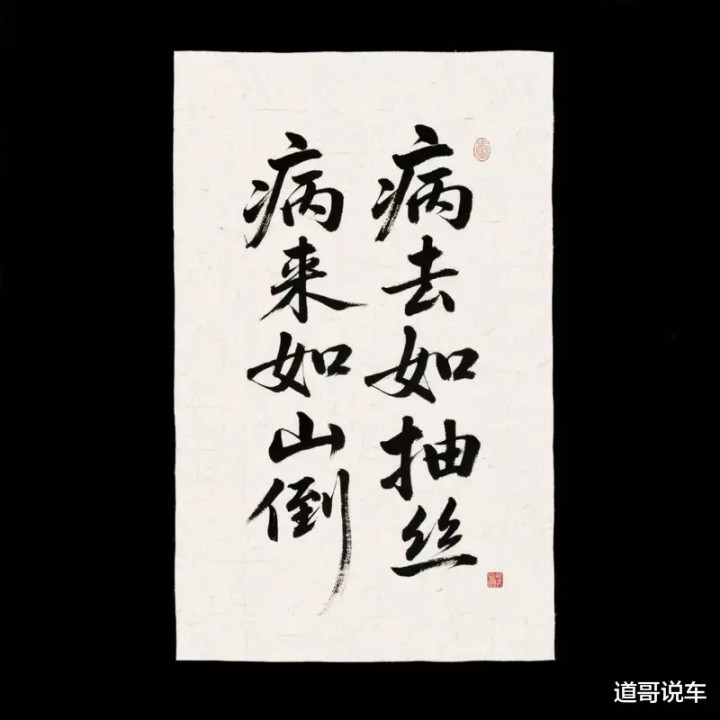 病去如抽丝
病来如山倒
道哥说车